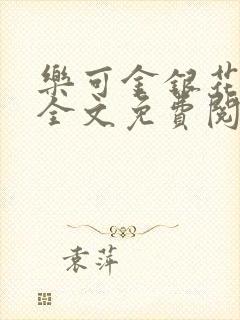 樂可金銀花
全文免費閱
袁萍